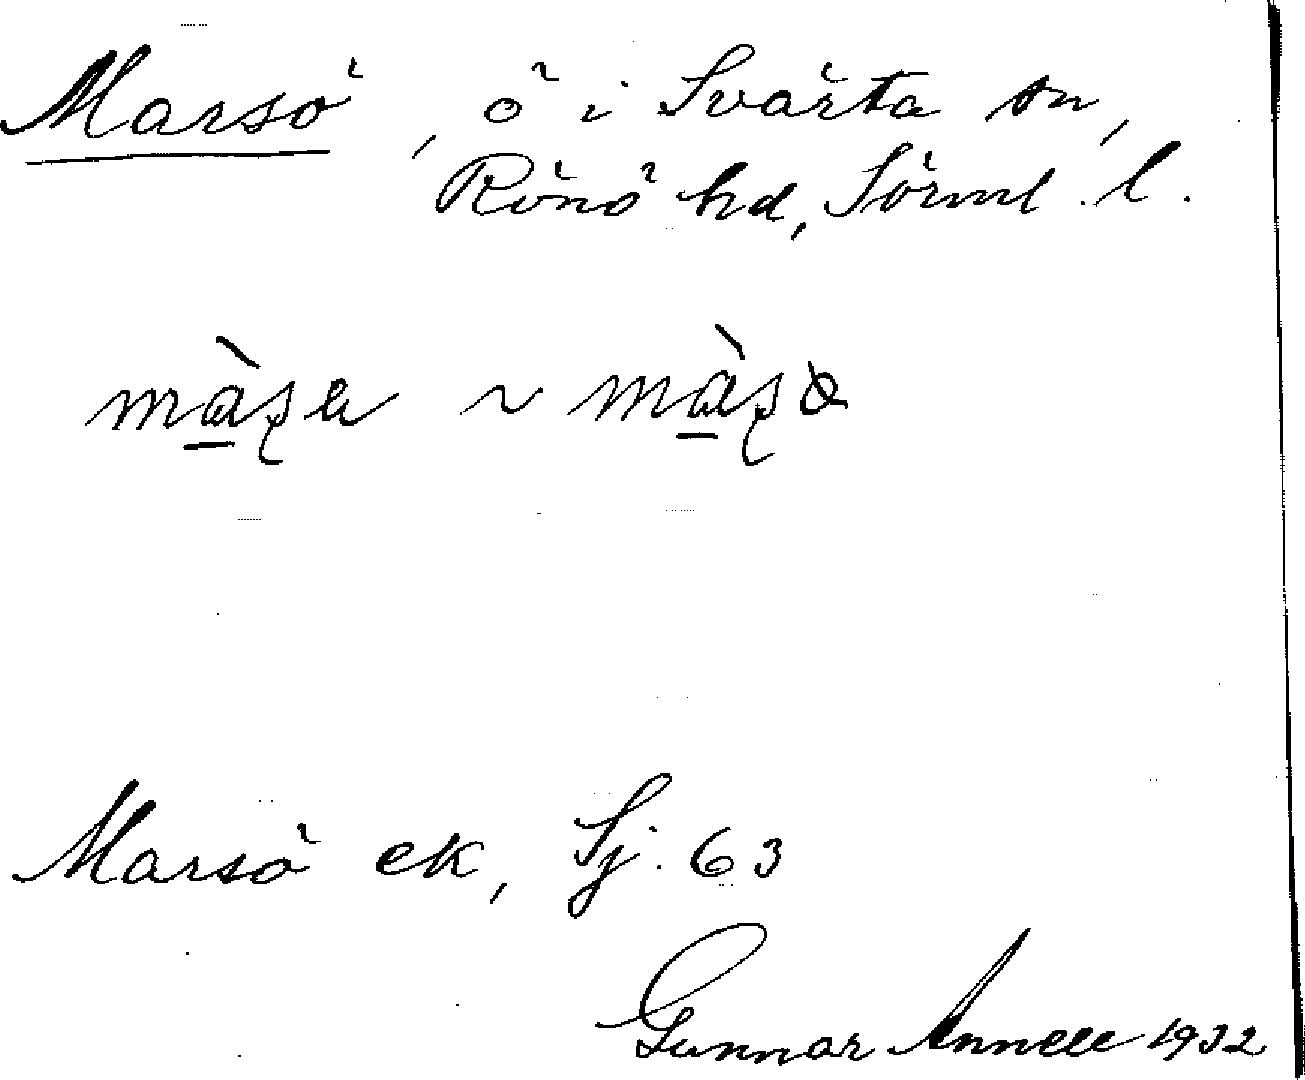 Marsö, ö i Svärta sn,
Rönö hd, Sörml. l.
màʂɐ ~ màʂə
Marsö ek, Sj. 63
Gunnar Annell 1932